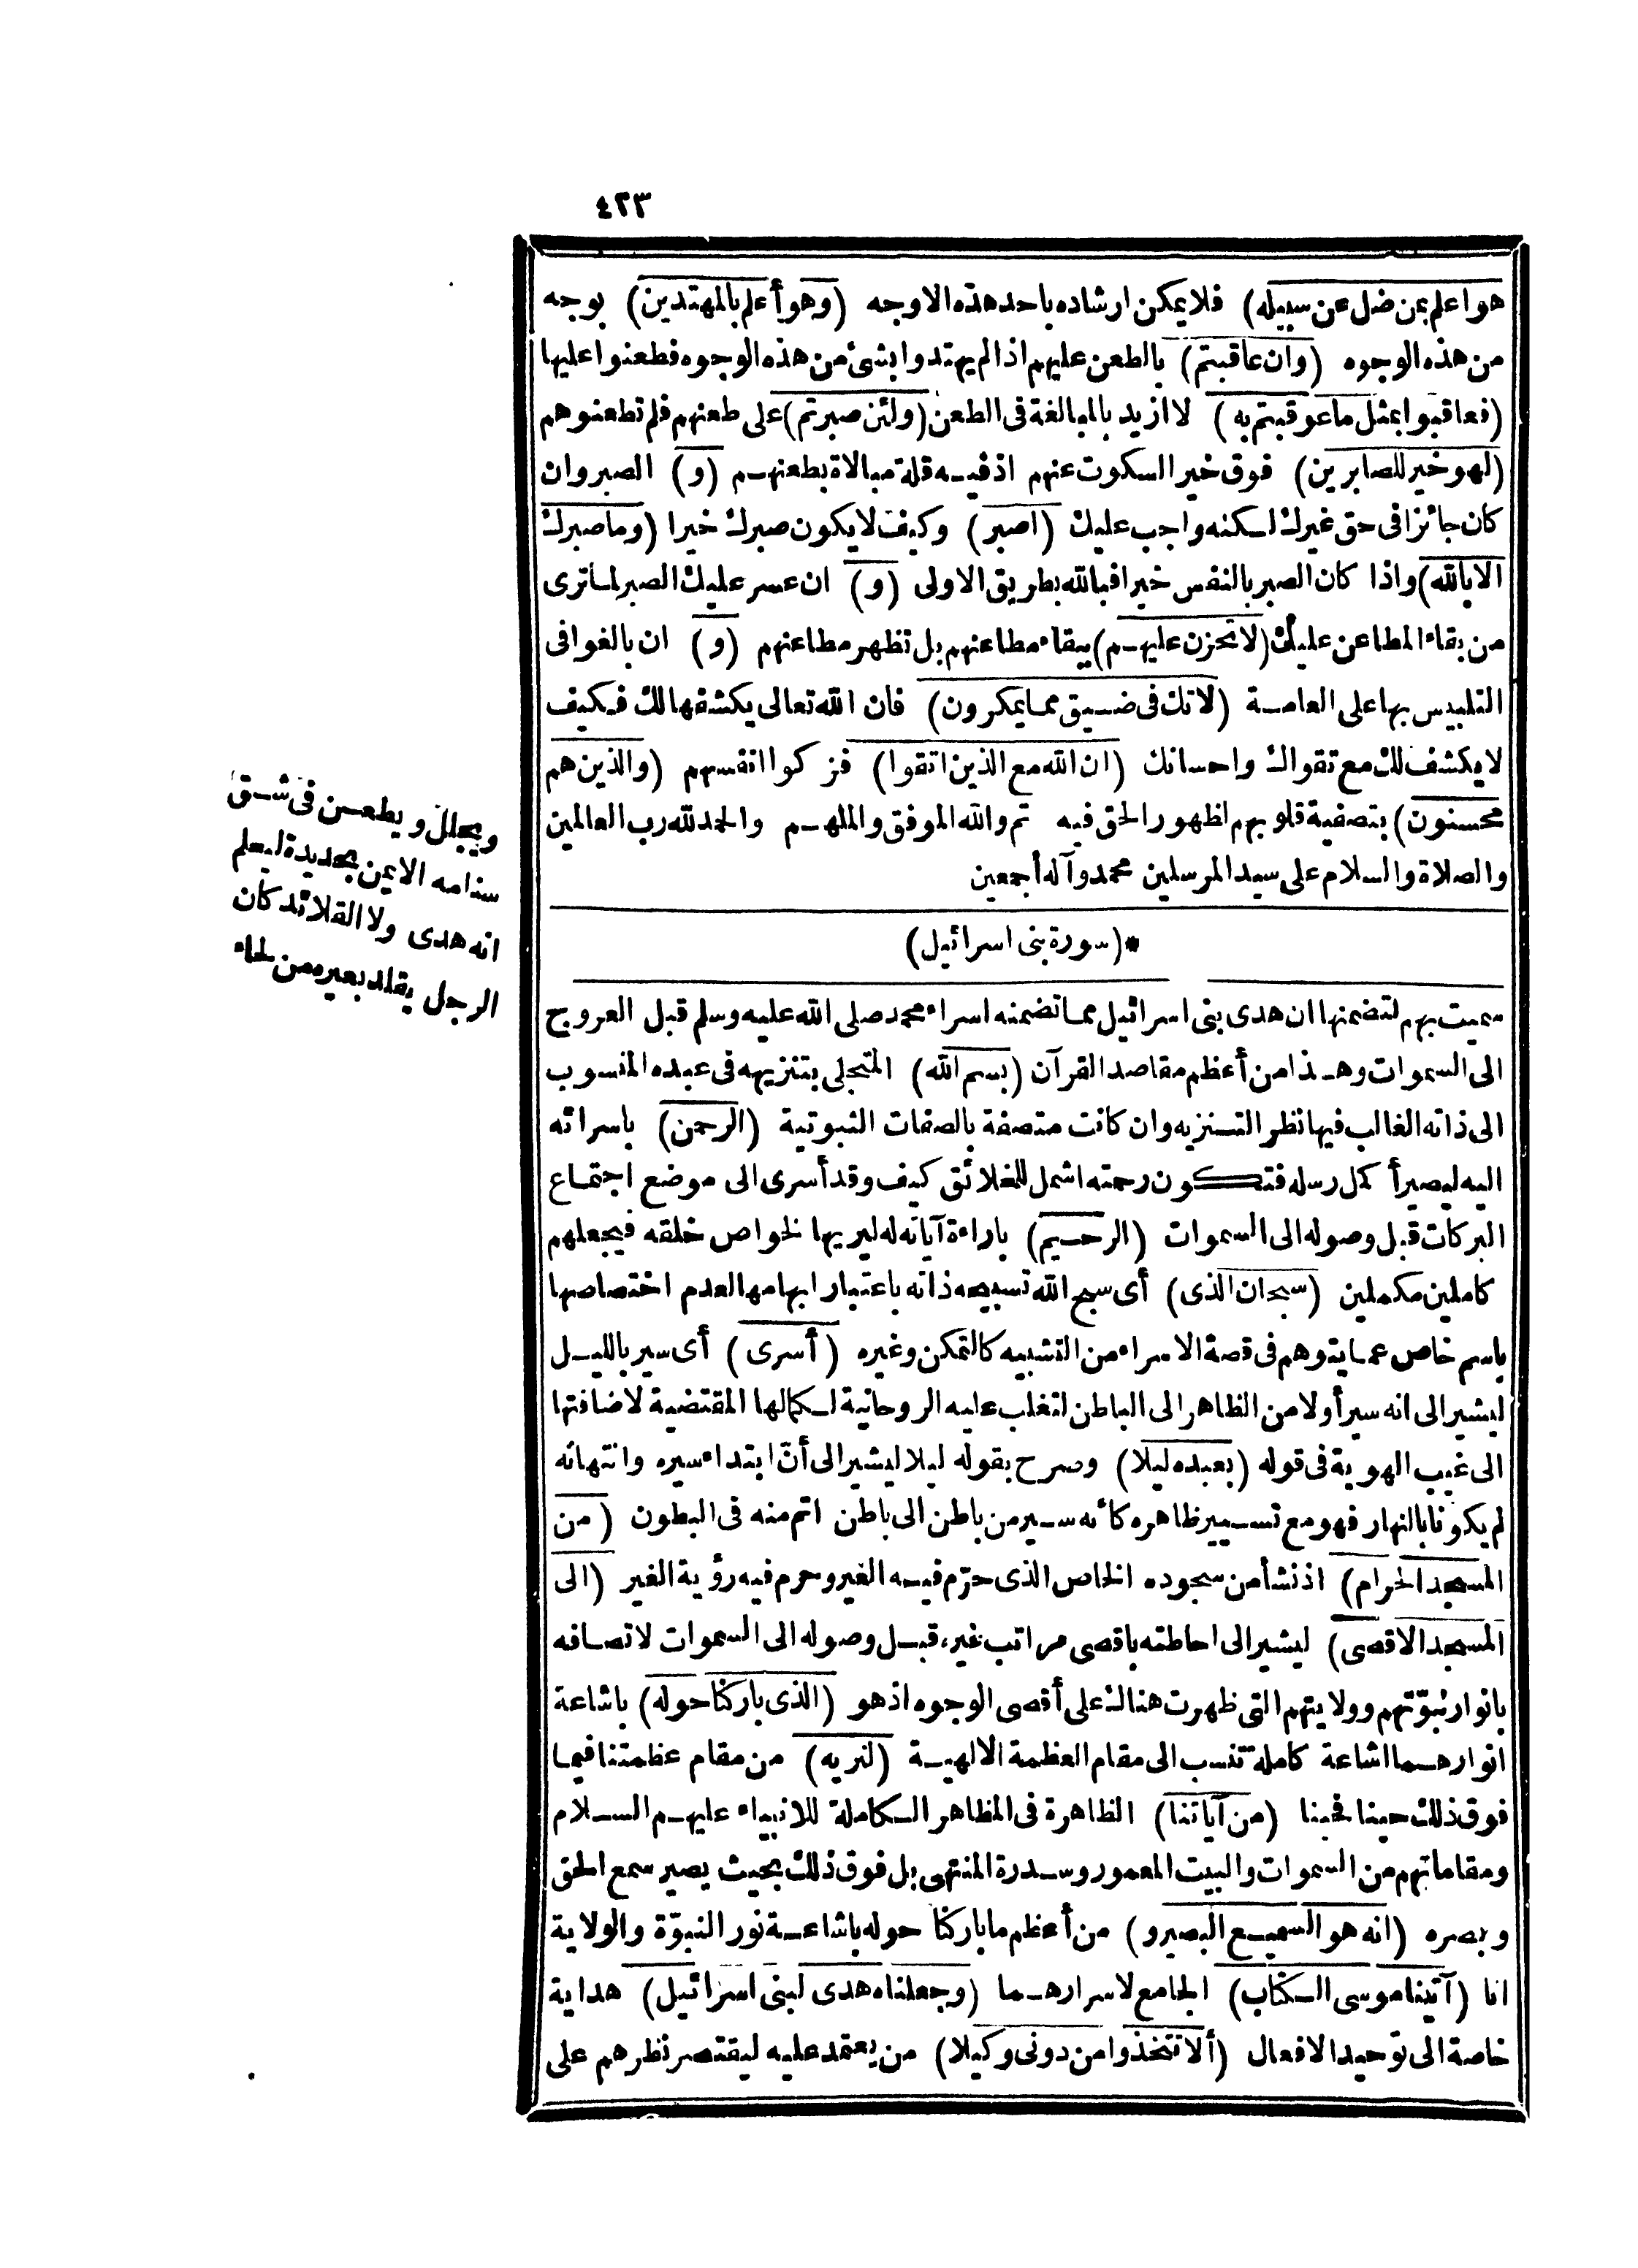 ٤٢٣
هو اعلم بمن ضل عن سبيله) فلا يمكن ارشاده باحد هذه الاوجه (وهو أعلم بالمهتدين) بوجه
من هذه الوجوه (وان عاقبتم) بالطعن عليهم اذا لم يهتدوا بشئ من هذه الوجوه فطعنوا عليها
(فعاقبوا بمثل ما عوقبتم به) لا ازيد بالمبالغة فى الطعن (ولئن صبرتم) على طعنهم فلم تطعنوهم
(لهو خير للصابرين) فوق خير السكوت عنهم اذ فيه قلة مبالاة بطعنهم (و) الصبر وان
كان جائزا فى حق غيرك لكنه واجب عليك (اصبر) وكيف لا يكون صبرك خيرا (وما صبرك
الا بالله) واذا كان الصبر بالنفس خيرا فبالله بطريق الاولى (و) ان عسر عليك الصبر لما ترى
من بقاء المطاعن عليك (لا تحزن عليهم) ببقاء مطاعنهم بل تظهر مطاعنهم (و) ان بالغوا فى
التلبيس بها على العامة (لا تك فى ضيق مما يمكرون) فان الله تعالى يكشفها لك فكيف
لا يكشف لك مع تقواك واحسانك (ان الله مع الذين اتقوا) فزكوا انفسهم (والذين هم
محسنون) بتصفية قلوبهم لظهور الحق فيه تم والله الموفق والملهم والحمد لله رب العالمين
والصلاة والسلام على سيد المرسلين محمد وآله أجمعين
*(سورة بنى اسرائيل)
سميت بهم لتضمنها ان هدى بنى اسرائيل مما تضمنه اسراء محمد صلى الله عليه وسلم قبل العروج
الى السموات وهذا من أعظم مقاصد القرآن (بسم الله) المتجلى بتنزيهه فى عبده المنسوب
الى ذاته الغالب فيها نظر التنزيه وان كانت متصفة بالصفات الثبوتية (الرحمن) باسرائه
اليه ليصير أكمل رسله فتكون رحمته اشمل للخلائق كيف وقد أسرى الى موضع اجتماع
البركات قبل وصوله الى السموات (الرحيم) باراءة آياته له ليريها لخواص خلقه فيجعلهم
كاملين مكملين (سبحان الذى) أى سبح الله تسبيحه ذاته باعتبار ابهامها لعدم اختصاصها
باسم خاص عما يتوهم فى قصة الاسراء من التشبيه كالتمكن وغيره (أسرى) أى سير بالليل
ليشير الى انه سير أولا من الظاهر الى الباطن لتغلب عليه الروحانية لكمالها المقتضية لاضافتها
الى غيب الهوية فى قوله (بعبده ليلا) وصرح بقوله ليلا ليشير الى أنّ ابتداء سيره وانتهائه
لم يكونا بالنهار فهو مع تسيير ظاهره كأنه سير من باطن الى باطن اتم منه فى البطون (من
المسجد الحرام) اذ نشأ من سجوده الخاص الذى حرّم فيه الغير وحرم فيه رؤية الغير (الى
المسجد الاقصى) ليشير الى احاطته باقصى مراتب غيره قبل وصوله الى السموات لاتصافه
بانوار نبوّتهم وولايتهم التى ظهرت هنالك على أقصى الوجوه اذ هو (الذى باركنا حوله) باشاعة
انوارهما اشاعة كاملة تنسب الى مقام العظمة الالهية (لنريه) من مقام عظمتنا فيما
فوق ذلك حينا فحينا (من آياتنا) الظاهرة فى المظاهر الكاملة للانبياء عليهم السلام
ومقاماتهم من السموات والبيت المعمور وسدرة المنتهى بل فوق ذلك بحيث يصير سمع الحق
وبصره (انه هو السميع البصير و) من أعظم ما باركنا حوله باشاعة نور النبوّة والولاية
انا (آتينا موسى الكتاب) الجامع لاسرارهما (وجعلناه هدى لبنى اسرائيل) هداية
خاصة الى توحيد الافعال (ألا تتخذوا من دونى وكيلا) من يعتمد عليه ليقتصر نظرهم على
ويجلل ويطعن فى شق
سنامه الايمن بحديدة ليعلم
انه هدى ولا القلائد كان
الرجل يقلد بعيره من لحاء